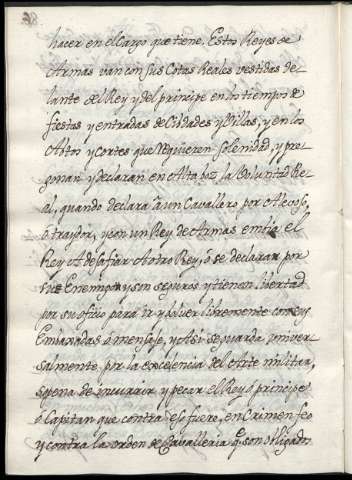 hacer en el Cargo que tiene. Estos Reyes de
Armas van con sus Cotas Reales vestidas de-
lante del Rey y del principe en los tiempos de
fiestas y entradas de Ciudades y Villas, y en los
Actos y Cortes que requieren solenidad, y pre-
gonan y declaran en Alta boz la Voluntad Re-
al, quando declara a un Cavallero por Alevoso,
o traydor, y con un Rey de Armas embia el
Rey A desafiar A otro Rey, o se declaran por
sus Enemigos y son seguros y tienen libertad
por su oficio para ir y bolver libremente con sus
Embaxadas o mensaje, y Asi se guarda univer-
salmente por la excelencia del Arte militar,
so pena de incurrir y pecar el Rey o principe
o Capitan que contra eso fuere, en Crimen feo
y contra la orden de Cavalleria q. son obligados